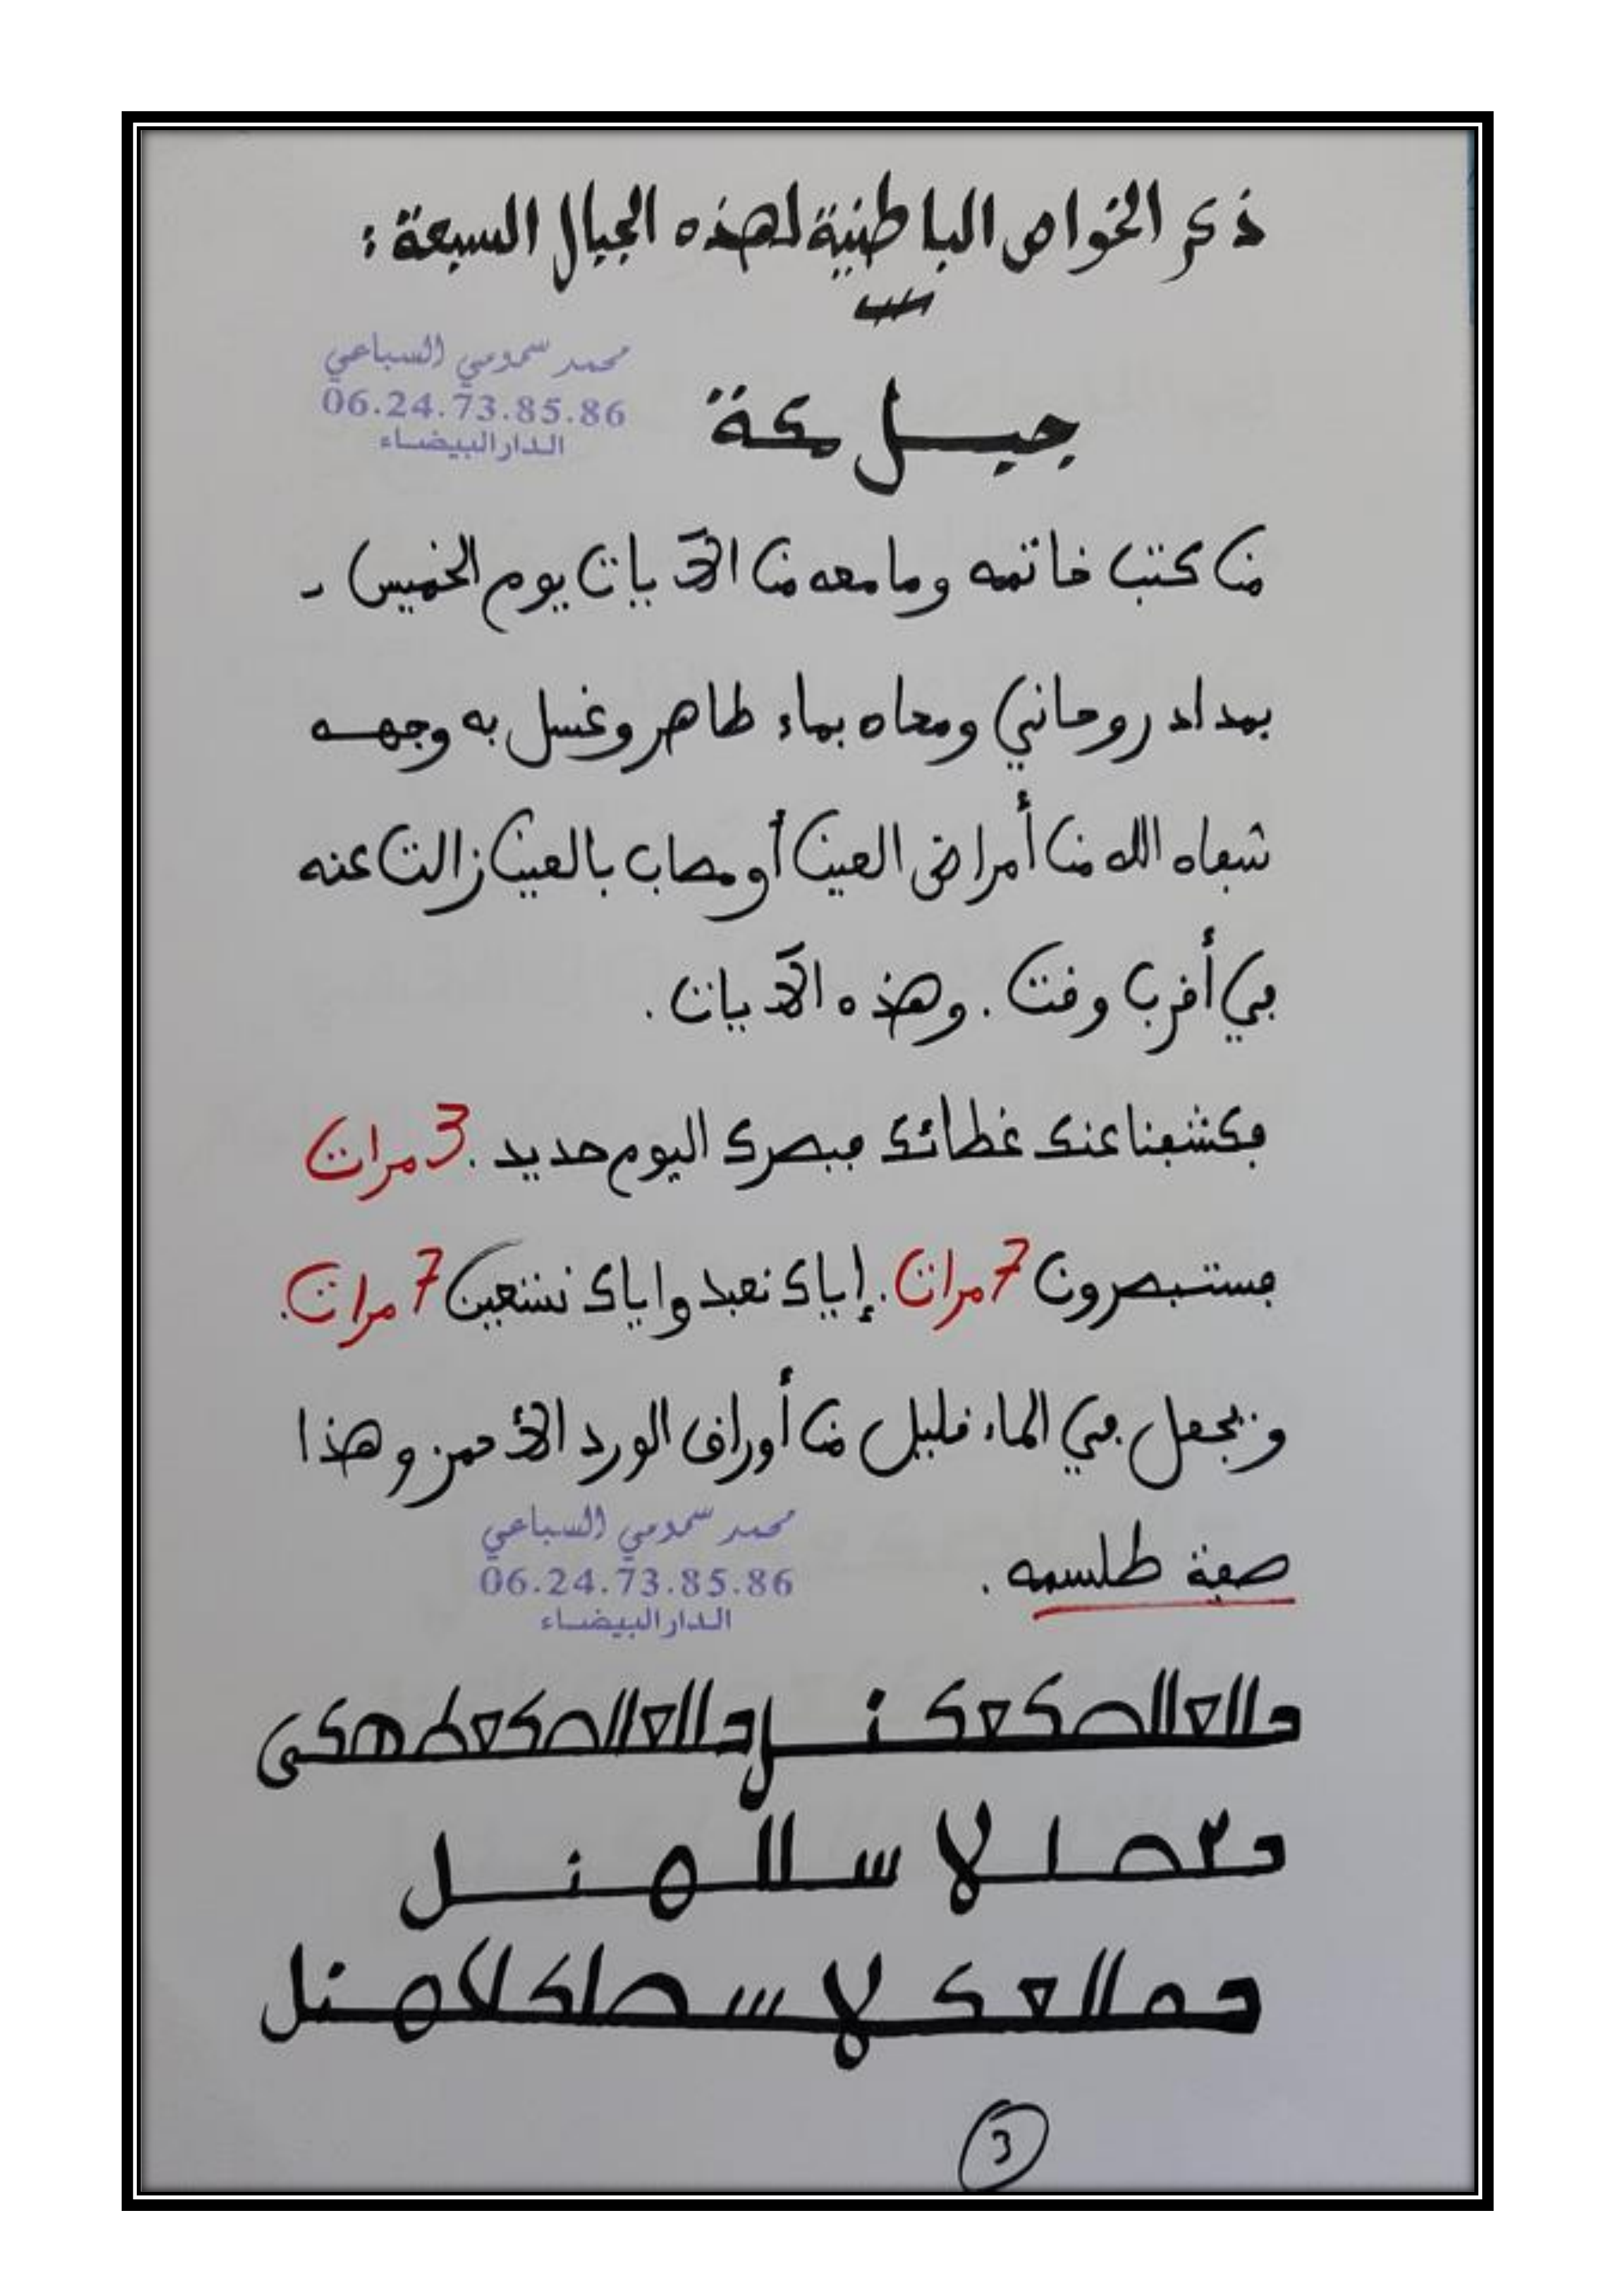 ذكر الخواص الباطنية لهذه الجبال السبعة :
محمد سمومي السباعي
06.24.73.85.86
الدار البيضاء
جبل مكة
من كتب خاتمه وما معه من الآيات يوم الخميس
بمداد روحاني ومحاه بماء طاهر وغسل به وجهه
شفاه الله من أمراض العين أو مصاب بالعين زالت عنه
في أقرب وقت . وهذه الآيات .
فكشفنا عنك غطائك فبصرك اليوم حديد . 3 مرات
مستبصرون 7 مرات . إياك نعبد وإياك نستعين 7 مرات .
وتجعل في الماء قليل من أوراق الورد الأحمر وهذا
صفة طلسمه .
محمد سمومي السباعي
06.24.73.85.86
الدار البيضاء
3